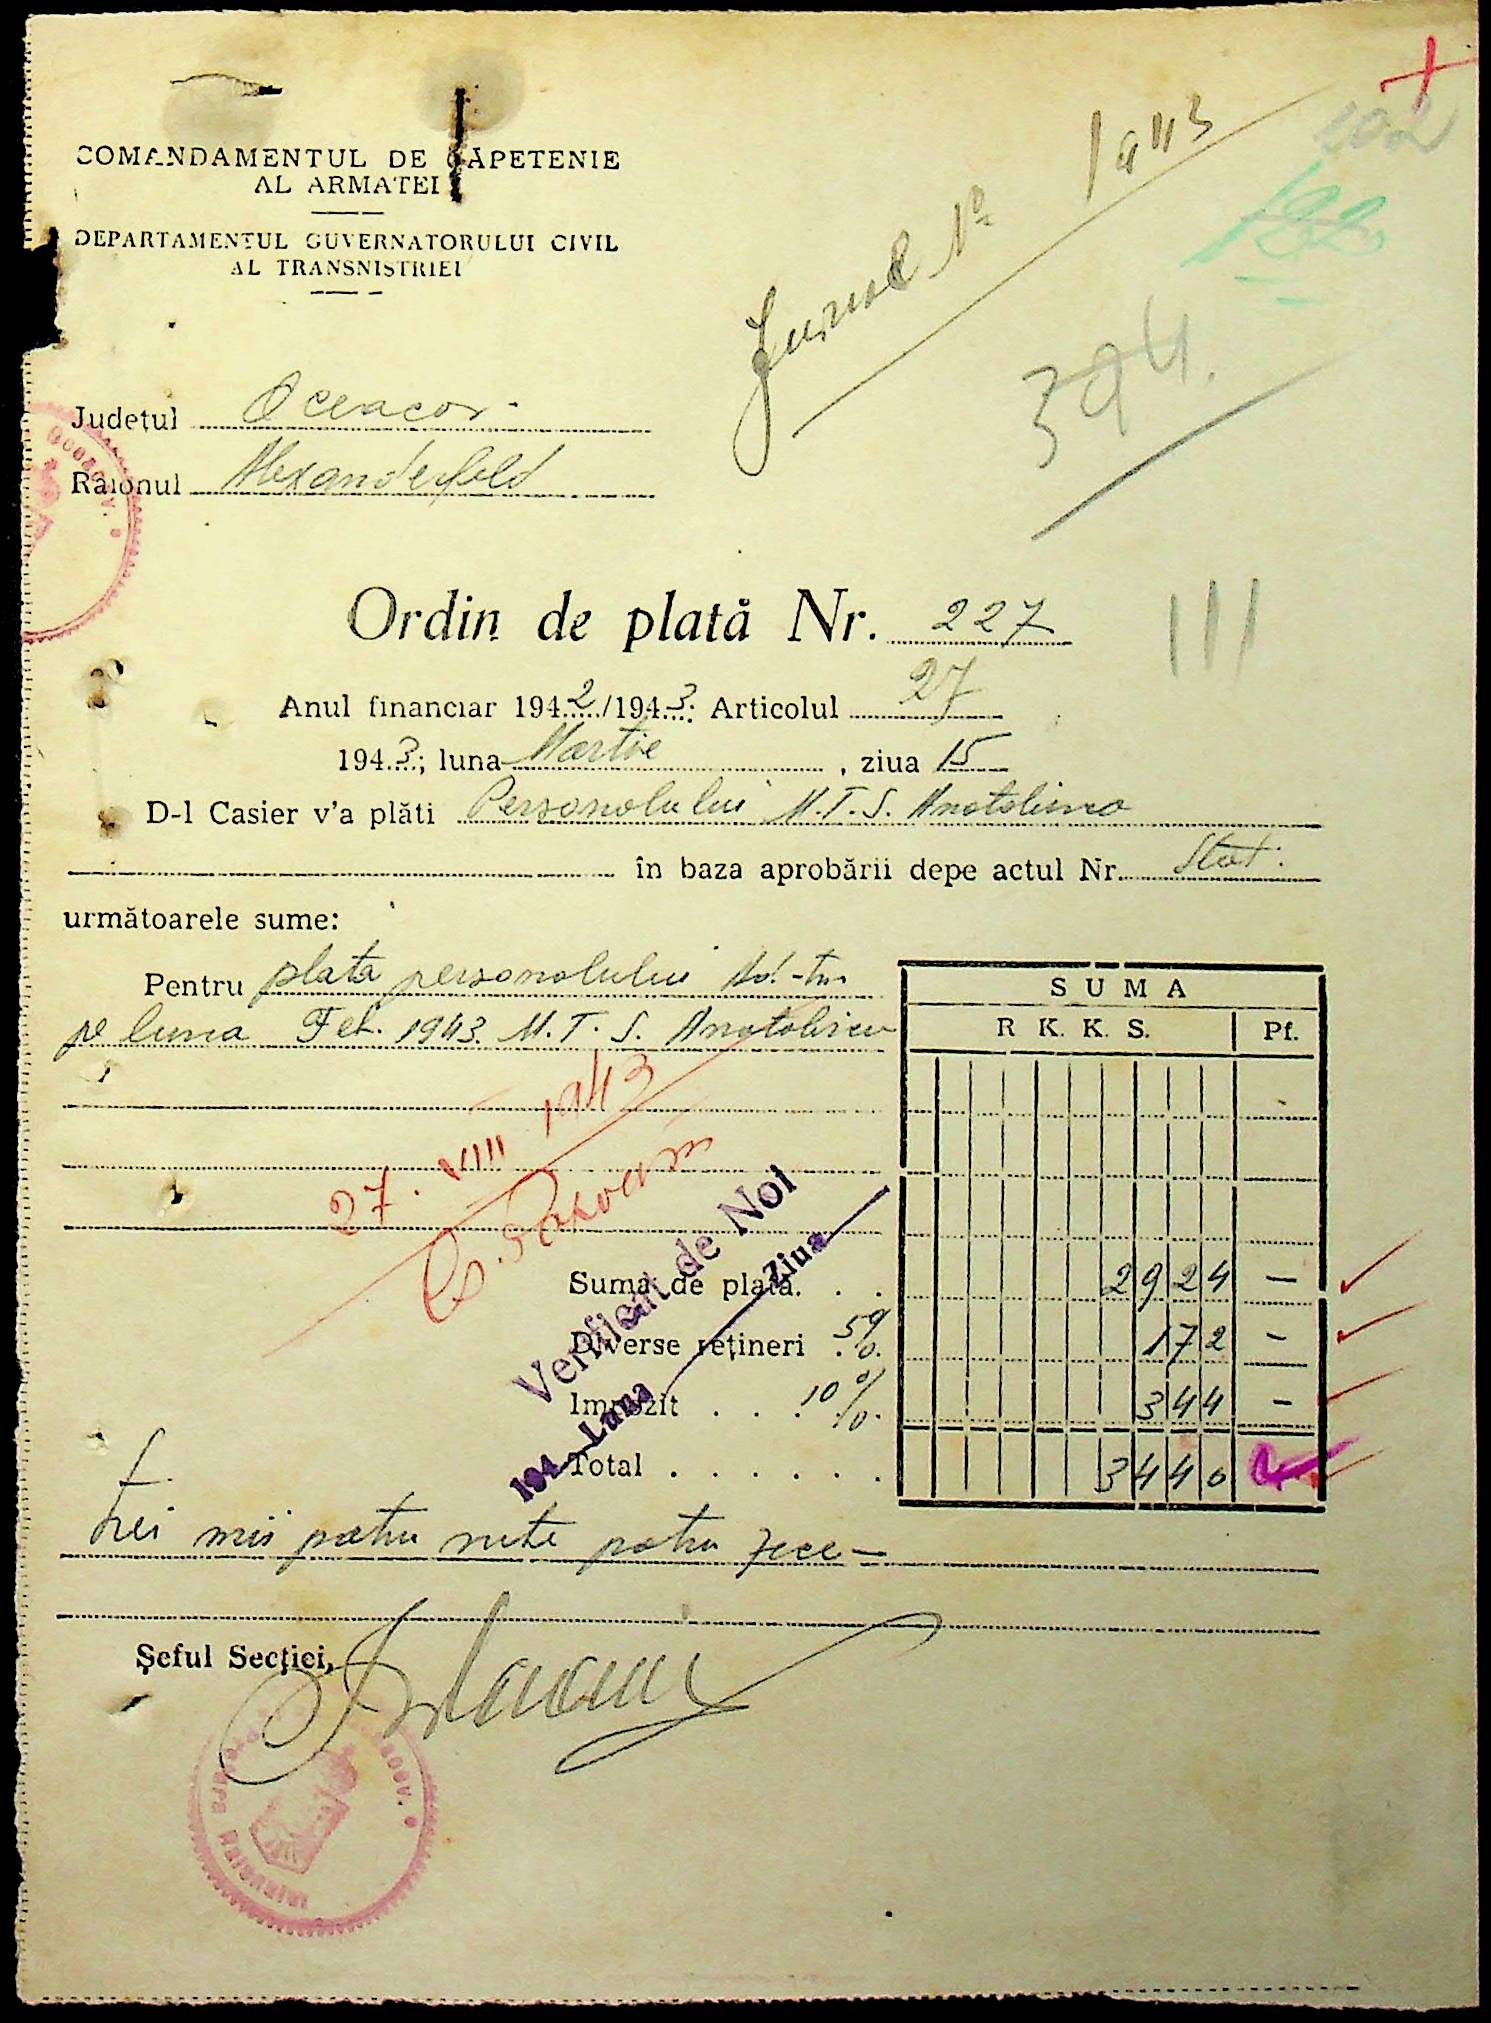 COMANDAMENTUL DE CAPETENIE
AL ARMATEI
DEPARTAMENTUL GUVERNATORULUI CIVIL
AL TRANSNISTRIEI
102
Jurnal No 1943
394.
Județul Oceacov.
Raionul Alexanderfeld
Ordin de plată Nr. 227
III
Anul financiar 1942/1943; Articolul 27
1943; luna Martie, ziua 15
D-l Casier v'a plăti Personalului M.T.S. Anatolievca
în baza aprobării depe actul Nr. Stat.
următoarele sume:
Pentru plata personalului Ad-tiv
pe luna Feb. 1943. M.T.S. Anatolievca
SUMA
R K. K. S. Pf.
27. VIII 1943
Verificat de Noi
194 Luna Ziua
Suma de plată. . . 2924 —
Diverse rețineri 5% 172 —
Impozit . . . 10% 344 —
Total . . . . . . 3440
trei mii patru sute patru zece —
Șeful Secției,
Pretura Raionului